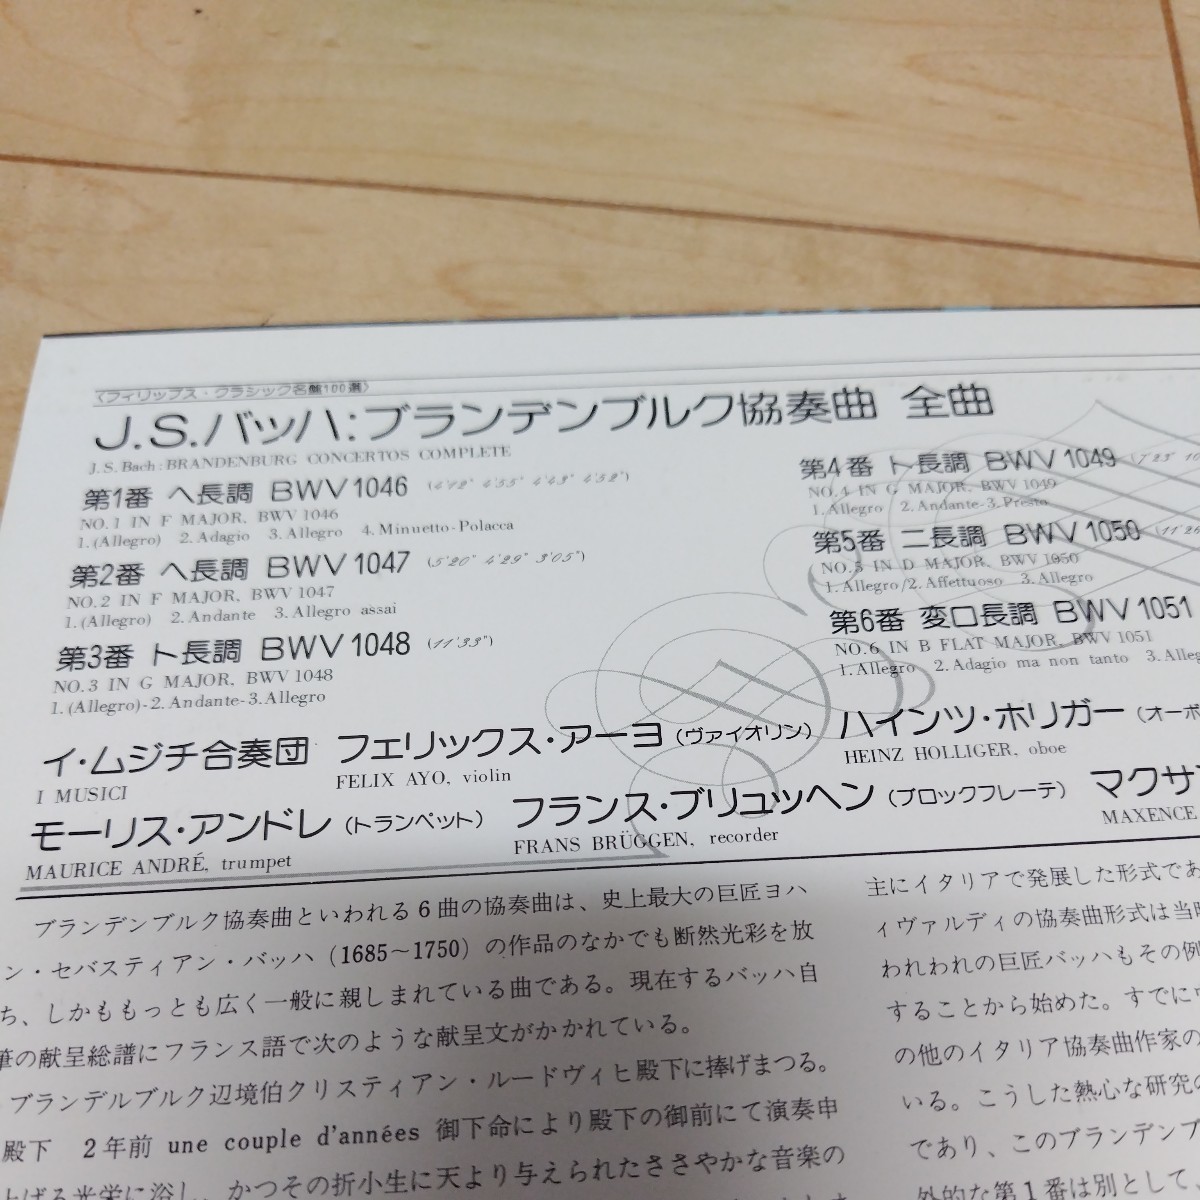 〈フィリップス・クラシック名盤100選〉
J.S.バッハ:ブランデンブルク協奏曲 全曲
J.S. Bach : BRANDENBURG CONCERTOS COMPLETE
第1番 ヘ長調 BWV 1046 (4'12" 4'55" 4'43" 4'52")
NO.1 IN F MAJOR, BWV 1046
1.(Allegro) 2.Adagio 3.Allegro 4.Minuetto-Polacca
第2番 ヘ長調 BWV 1047 (5'20" 4'29" 3'05")
NO.2 IN F MAJOR, BWV 1047
1.(Allegro) 2.Andante 3.Allegro assai
第3番 ト長調 BWV 1048 (11'33")
NO.3 IN G MAJOR, BWV 1048
1.(Allegro)-2.Andante-3.Allegro
第4番 ト長調 BWV 1049 (7'23"
NO.4 IN G MAJOR, BWV 1049
1.Allegro 2.Andante-3.Presto
第5番 ニ長調 BWV 1050
NO.5 IN D MAJOR, BWV 1050
1.Allegro/2.Affettuoso 3.Allegro
第6番 変ロ長調 BWV 1051
NO.6 IN B FLAT MAJOR, BWV 1051
1.Allegro 2.Adagio ma non tanto 3.Alleg
イ・ムジチ合奏団 フェリックス・アーヨ(ヴァイオリン) ハインツ・ホリガー(オーボ
I MUSICI FELIX AYO, violin HEINZ HOLLIGER, oboe
モーリス・アンドレ(トランペット) フランス・ブリュッヘン(ブロックフレーテ) マクサ
MAURICE ANDRÉ, trumpet FRANS BRÜGGEN, recorder MAXENCE
ブランデンブルク協奏曲といわれる6曲の協奏曲は、史上最大の巨匠ヨハ
ン・セバスティアン・バッハ(1685〜1750)の作品のなかでも断然光彩を放
ち、しかももっとも広く一般に親しまれている曲である。現在するバッハ自
筆の献呈総譜にフランス語で次のような献呈文がかかれている。
ブランデルブルク辺境伯クリスティアン・ルードヴィヒ殿下に捧げまつる。
殿下 2年前 une couple d'années 御下命により殿下の御前にて演奏申
上げる光栄に浴し、かつその折小生に天より与えられたささやかな音楽の
主にイタリアで発展した形式であ
ィヴァルディの協奏曲形式は当時
われわれの巨匠バッハもその例
することから始めた。すでにヴ
の他のイタリア協奏曲作家の
いる。こうした熱心な研究の
であり、このブランデンブ
外的な第1番は別として、